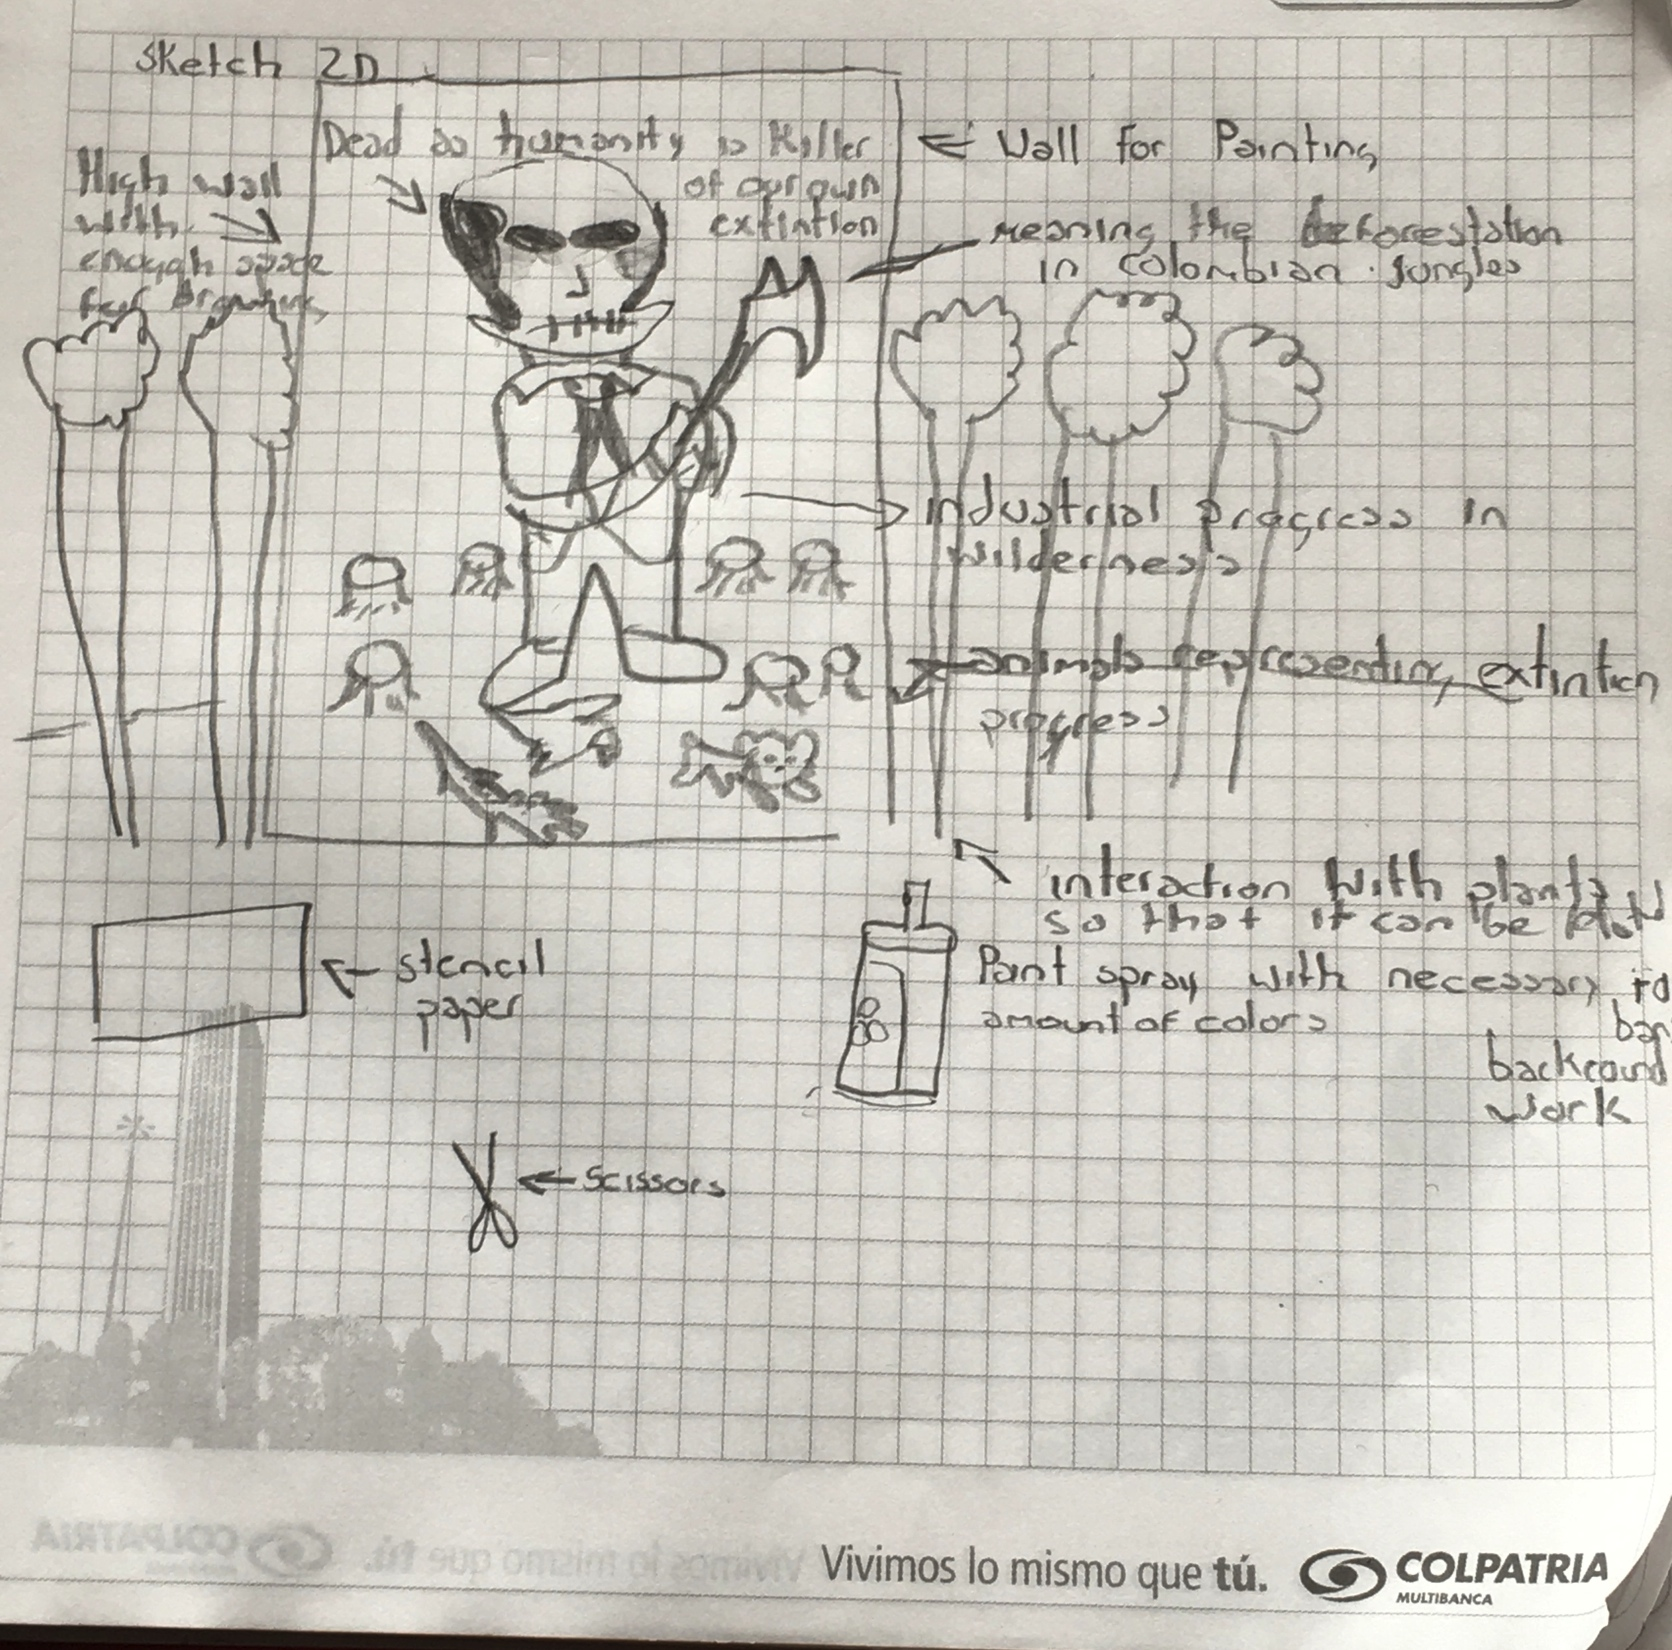 Sketch 2D
Dead as humanity is Killer
of our own
extintion
High wall
with
enough space
for Drawing
Wall for Painting
meaning the deforestation
in colombian jungles
industrial progress in
wilderness
animals representing extintion
progress
interaction with plants
so that it can be
Paint spray with necessary
amount of colors
backround
work
stencil
paper
scissors
Vivimos lo mismo que tú.
COLPATRIA
MULTIBANCA